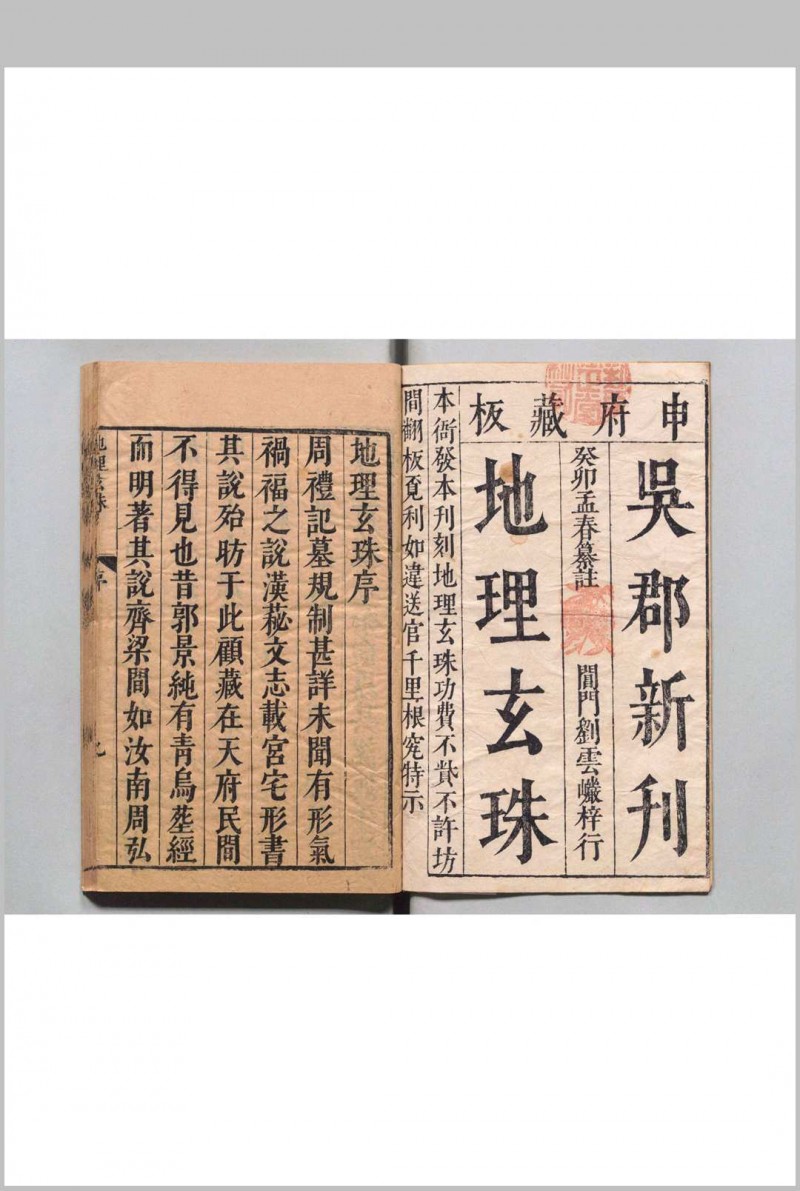 申府藏板
吳郡新刊
癸卯孟春纂註
閶門劉雲巘梓行
地理玄珠
本衙發本刊刻地理玄珠功費不貲不許坊
間翻板覓利如違送官千里根究特示
地理玄珠序
周禮記墓規制甚詳未聞有形氣
禍福之說漢藝文志載宮宅形書
其說殆昉于此顧藏在天府民間
不得見也昔郭景純有青烏塟經
而明著其說齊梁間如汝南周弘
地理玄珠
序